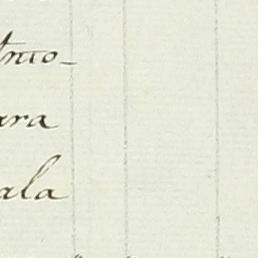 nio_
ara
ala